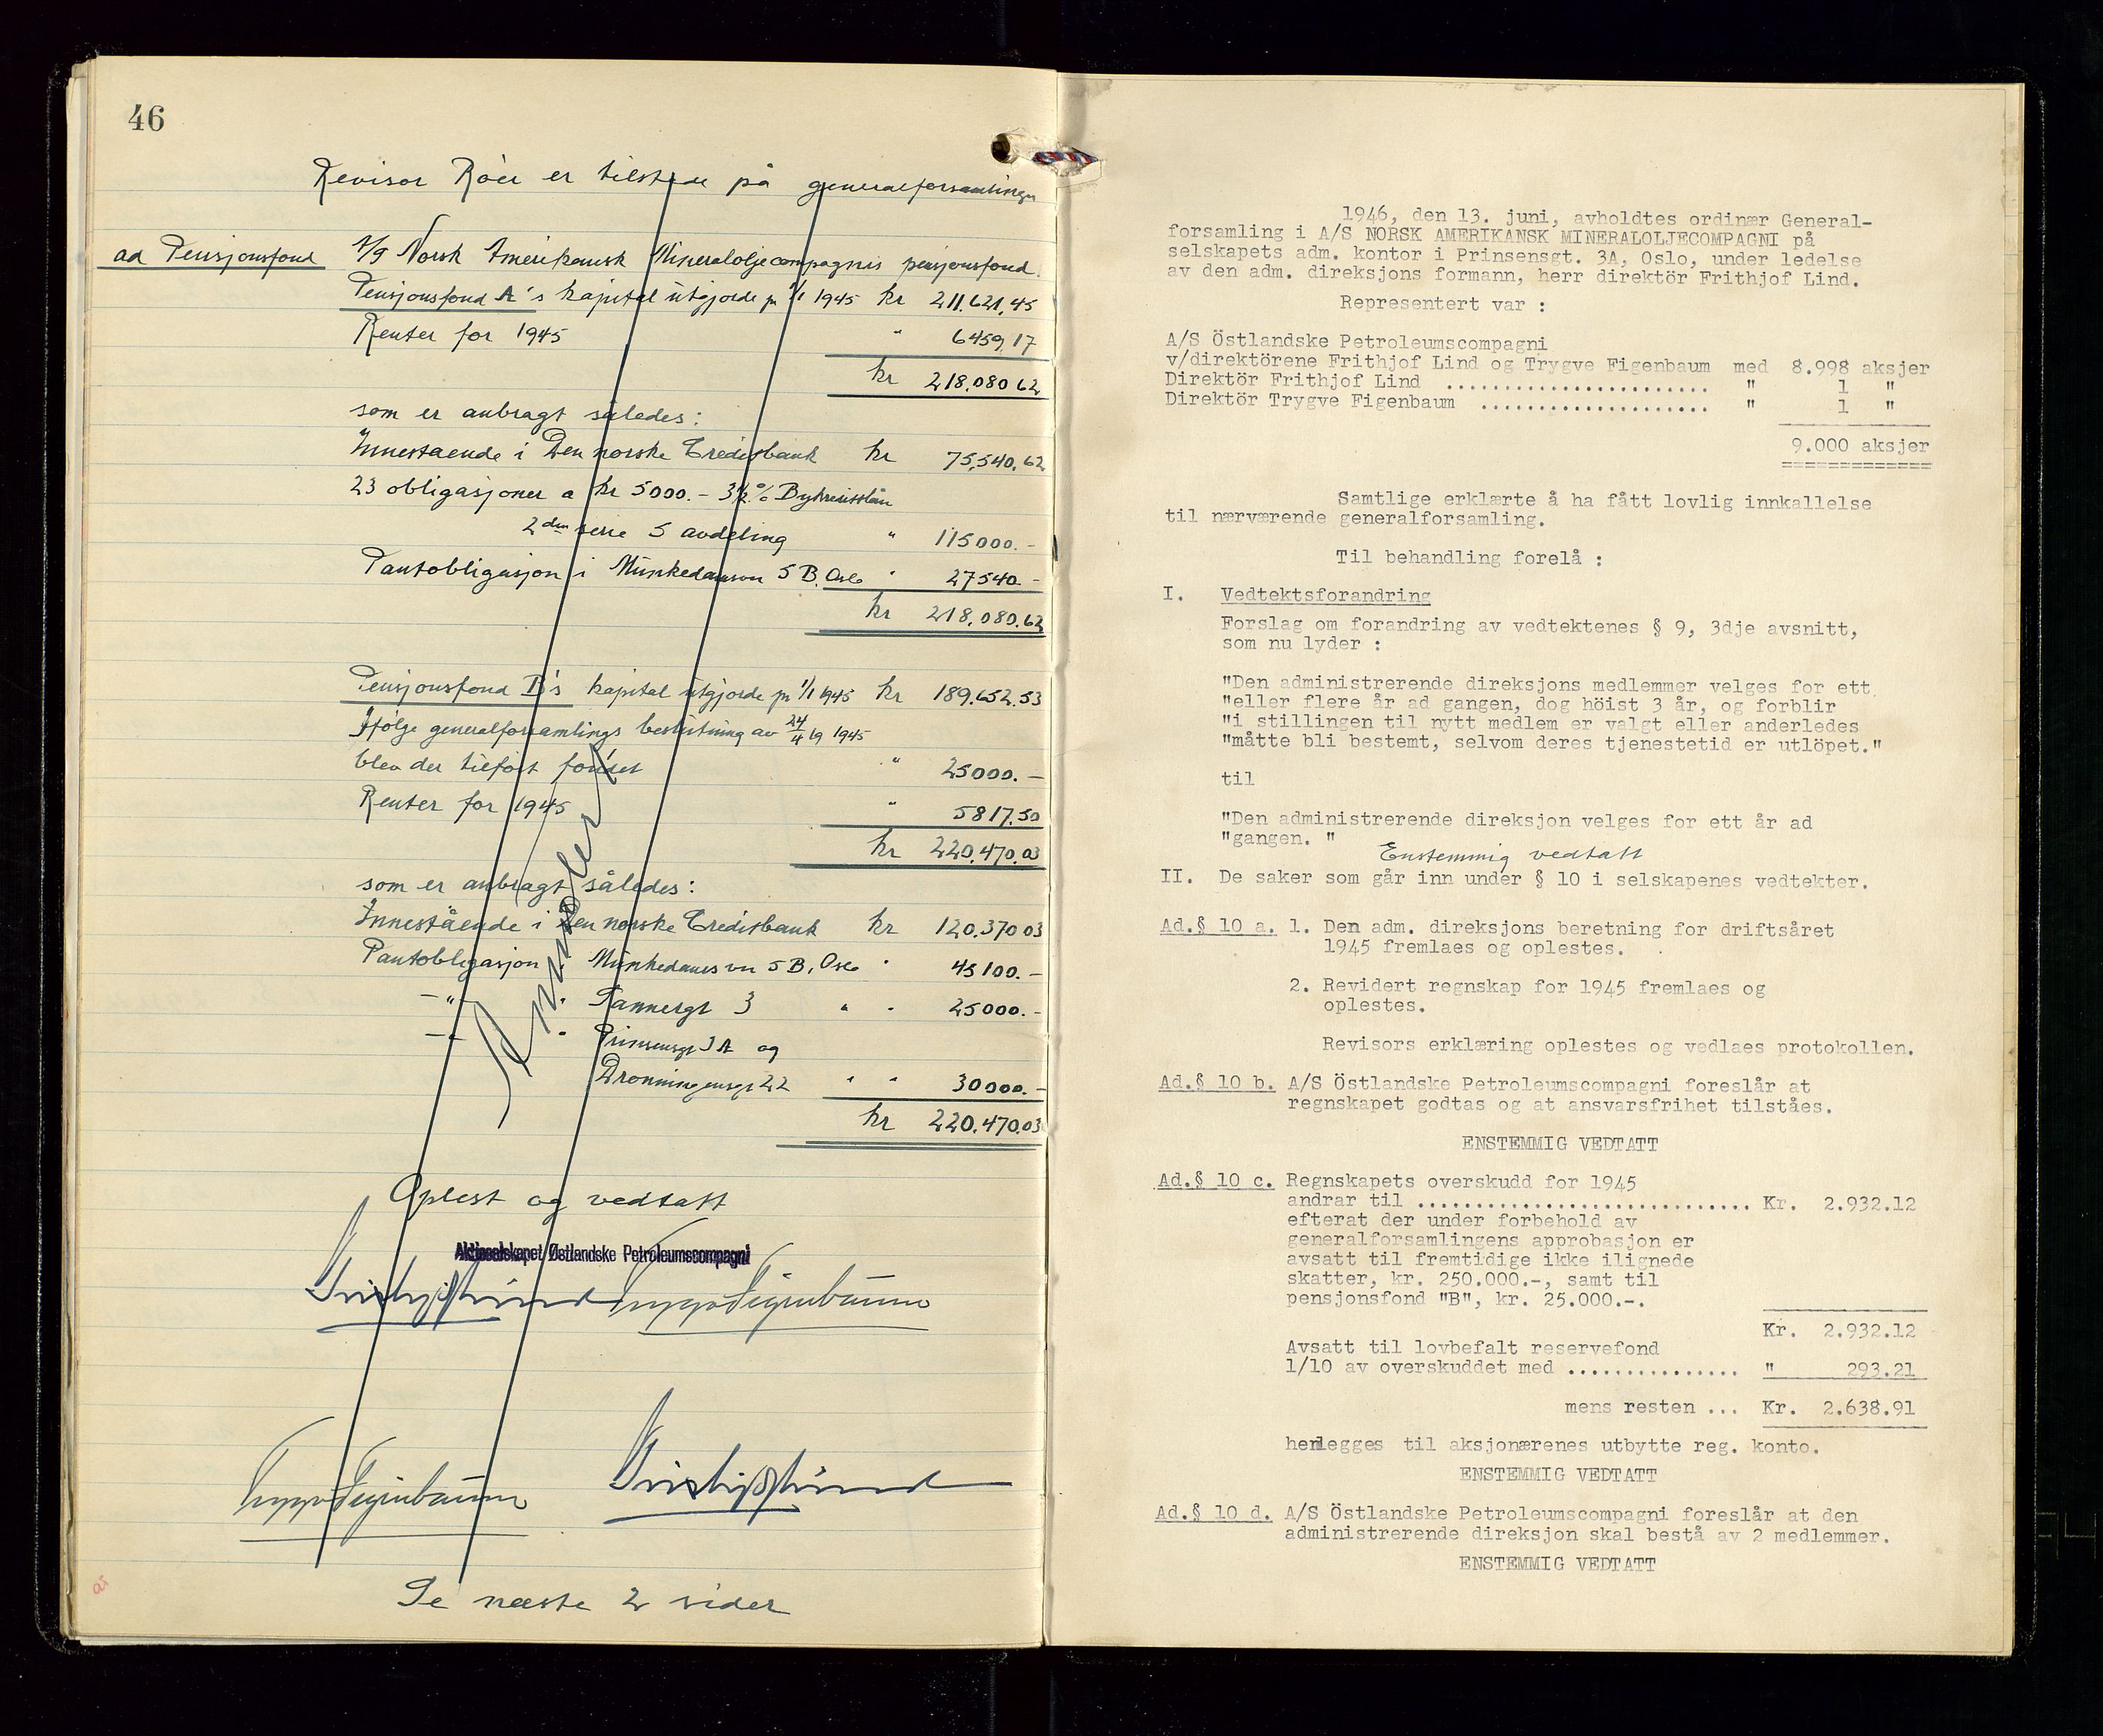 46
Revisor Röer er tilstede på generalforsamlingen
ad Pensjonsfond A/S Norsk Amerikansk Mineraloljecompagnis pensjonsfond.
Pensjonsfond A's kapital utgjorde pr 1/1 1945 kr 211.621,45
Renter for 1945 " 6459.17
kr 218.080 62
som er anbragt således:
Innestaende i Den norske Creditbank kr 75.540,62
23 obligasjoner a kr 5000.- 3½% Bykreisislån
2den serie 5 avdeling " 115000.-
Pantobligasjon i Munkedamsvn 5 B, Oslo " 27540.-
kr 218.080.62
Pensjonsfond B's kapital utgjorde pr 1/1 1945 kr 189.652.53
Ifølge generalforsamlings beslutning av 24/4 19 1945
blev der tilført fondet " 25000.-
Renter for 1945 " 5817.50
kr 220.470.03
som er anbragt således:
Innestående i Den norske Creditbank kr 120.370 03
Pantobligasjon i Munkedamsvn 5 B, Oslo " 45100.-
-"- " Sannergt 3 " " 25000.-
-"- " Prinsensgt 3 A og
Dronningensgt 22 " " 30000.-
kr 220.470.03
Annulleret
Oplest og vedtatt
Aktieselskapet Østlandske Petroleumscompagni
Frithjof Lind Trygve Figenbaum
Trygve Figenbaum Frithjof Lind
Se næste 2 sider
1946, den 13. juni, avholdtes ordinær General-
forsamling i A/S NORSK AMERIKANSK MINERALOLJECOMPAGNI på
selskapets adm. kontor i Prinsensgt. 3A, Oslo, under ledelse
av den adm. direksjons formann, herr direktör Frithjof Lind.
Representert var :
A/S Östlandske Petroleumscompagni
v/direktörene Frithjof Lind og Trygve Figenbaum med 8.998 aksjer
Direktör Frithjof Lind ........................ " 1 "
Direktör Trygve Figenbaum .................... " 1 "
9.000 aksjer
Samtlige erklærte å ha fått lovlig innkallelse
til nærværende generalforsamling.
Til behandling forelå :
I. Vedtektsforandring
Forslag om forandring av vedtektenes § 9, 3dje avsnitt,
som nu lyder :
"Den administrerende direksjons medlemmer velges for ett
"eller flere år ad gangen, dog höist 3 år, og forblir
"i stillingen til nytt medlem er valgt eller anderledes
"måtte bli bestemt, selvom deres tjenestetid er utlöpet."
til
"Den administrerende direksjon velges for ett år ad
"gangen. "
Enstemmig vedtatt
II. De saker som går inn under § 10 i selskapenes vedtekter.
Ad.§ 10 a. 1. Den adm. direksjons beretning for driftsåret
1945 fremlaes og oplestes.
2. Revidert regnskap for 1945 fremlaes og
oplestes.
Revisors erklæring oplestes og vedlaes protokollen.
Ad.§ 10 b. A/S Östlandske Petroleumscompagni foreslår at
regnskapet godtas og at ansvarsfrihet tilståes.
ENSTEMMIG VEDTATT
Ad.§ 10 c. Regnskapets overskudd for 1945
andrar til ............................. Kr. 2.932.12
efterat der under forbehold av
generalforsamlingens approbasjon er
avsatt til fremtidige ikke ilignede
skatter, kr. 250.000.-, samt til
pensjonsfond "B", kr. 25.000.-.
Kr. 2.932.12
Avsatt til lovbefalt reservefond
1/10 av overskuddet med ............... " 293.21
mens resten ... Kr. 2.638.91
henlegges til aksjonærenes utbytte reg. konto.
ENSTEMMIG VEDTATT
Ad.§ 10 d. A/S Östlandske Petroleumscompagni foreslår at den
administrerende direksjon skal bestå av 2 medlemmer.
ENSTEMMIG VEDTATT